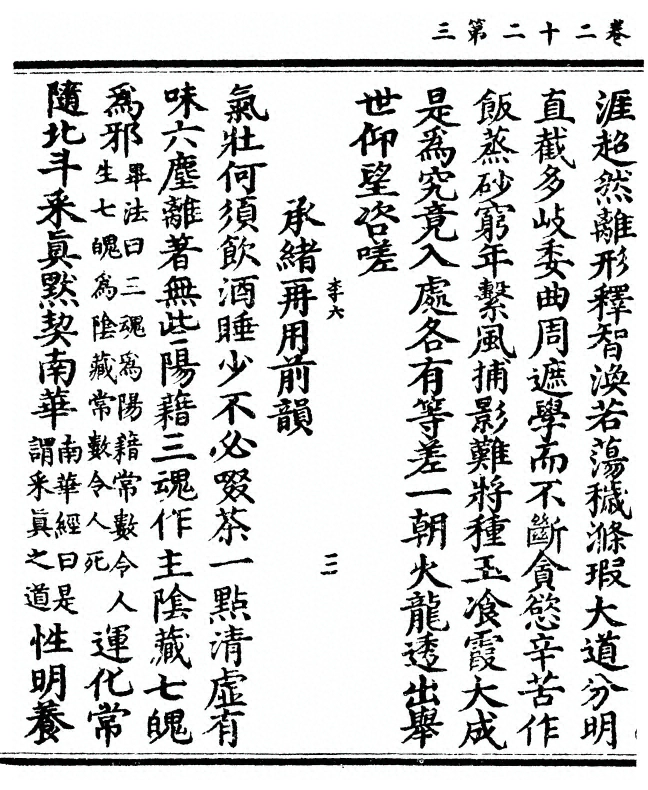 卷二十二第三
涯超然離形釋智渙若蕩穢滌瑕大道分明
直截多岐委曲周遮學而不斷貪慾辛苦作
飯蒸砂窮年繫風捕影難將種玉飡霞大成
是爲究竟入處各有等差一朝火龍透出舉
世仰望咨嗟
承緒再用前韻 李六 三
氣壯何須飲酒睡少不必啜茶一點清虛有
味六塵離著無此陽籍三魂作主陰藏七魄
爲邪 畢法曰三魂爲陽籍常數令人生七魄爲陰藏常數令人死 運化常
隨北斗采眞默契南華 南華經曰是謂采眞之道 性明養